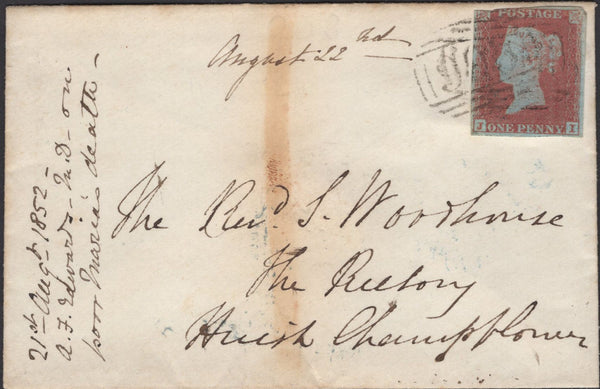 August 22nd
POSTAGE
J ONE PENNY I
The Revd S. Woodhouse
The Rectory
Huish Champflower
21st Augt 1852 -
A. F. Edwards - M.D - on
poor Maria's death -